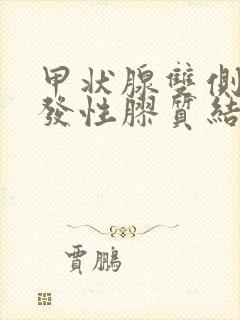 甲状腺雙側
發性膠質結
賈鵬